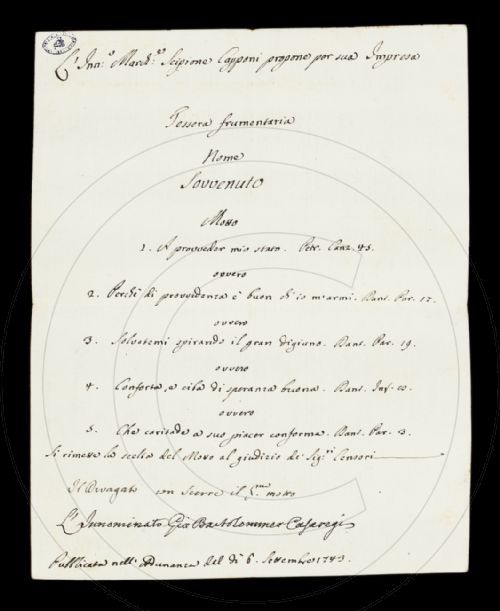 L' Inn.º March.º Scipione Capponi propone per sua Impresa
Tessera frumentaria
Nome
Sovvenuto
Motto
1. A provveder mio stato. Petr. Canz.
ovvero
2. Perchè di provvidenza è buon ch' io m' armi. Dant. Par. 17.
ovvero
3. Solvetemi spirando il gran digiuno. Dant. Par. 19.
ovvero
4. Conforta, e ciba di speranza buona. Dant. Inf.
ovvero
5. Che caritade a suo piacer conforma. Dant. Par. 3.
Si rimette la scelta del Motto al giudizio de' Sig.ri Censori
Il Divagato con Scerre il motto
L' Innominato Gio Bartolommeo Casaregi
Pubblicata nell' Adunanza del dì 6. Settembre 1743.